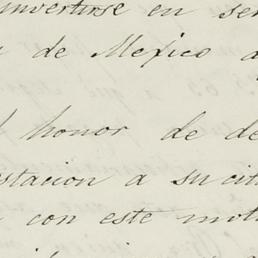 invertirse en ser
de Mexico a
honor de de
estacion a su cit
con este mot